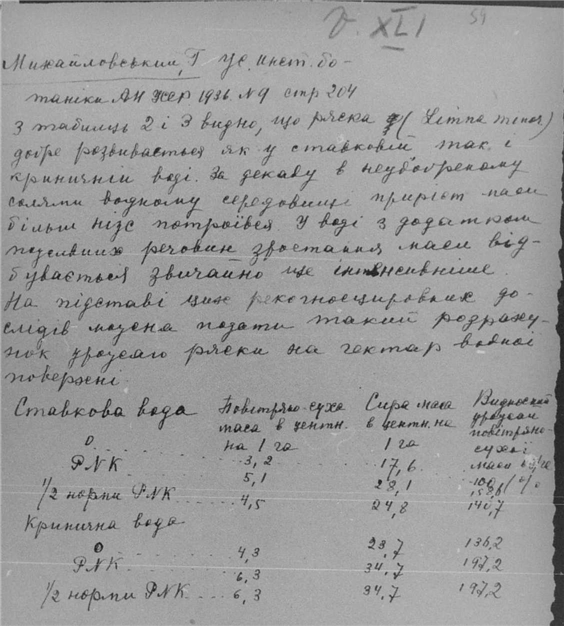 V. XLI 59
Михайловський, Г Ус. инст. бо-
таніки АН УСР 1936. №9 стр 204
З таблиць 2 і 3 видно, що ряска (Lemna minor)
добре розвивається як у ставковій так і
криничній воді. За декаду в неудобреному
солями водному середовищі приріст маси
більш ніж потроївся. У воді з додатком
поживних речовин зростання маси від-
бувається звичайно ще інтенсивніше.
На підставі цих рекогносцировних до-
слідів можна подати такий розраху-
нок урожаю ряски на гектар водної
поверхні
Ставкова вода Повітряно-суха маса в центн. на 1 га Сира маса в центн. на 1 га Видносний урожай повітряно-сухої маси
0 3,2 17,6 100%
PNK 5,1 28,1 158,6
1/2 норми PNK 4,5 24,8 140,7
Кринична вода
0 4,3 23,7 136,2
PNK 6,3 34,7 197,2
1/2 норми PNK 6,3 34,7 197,2